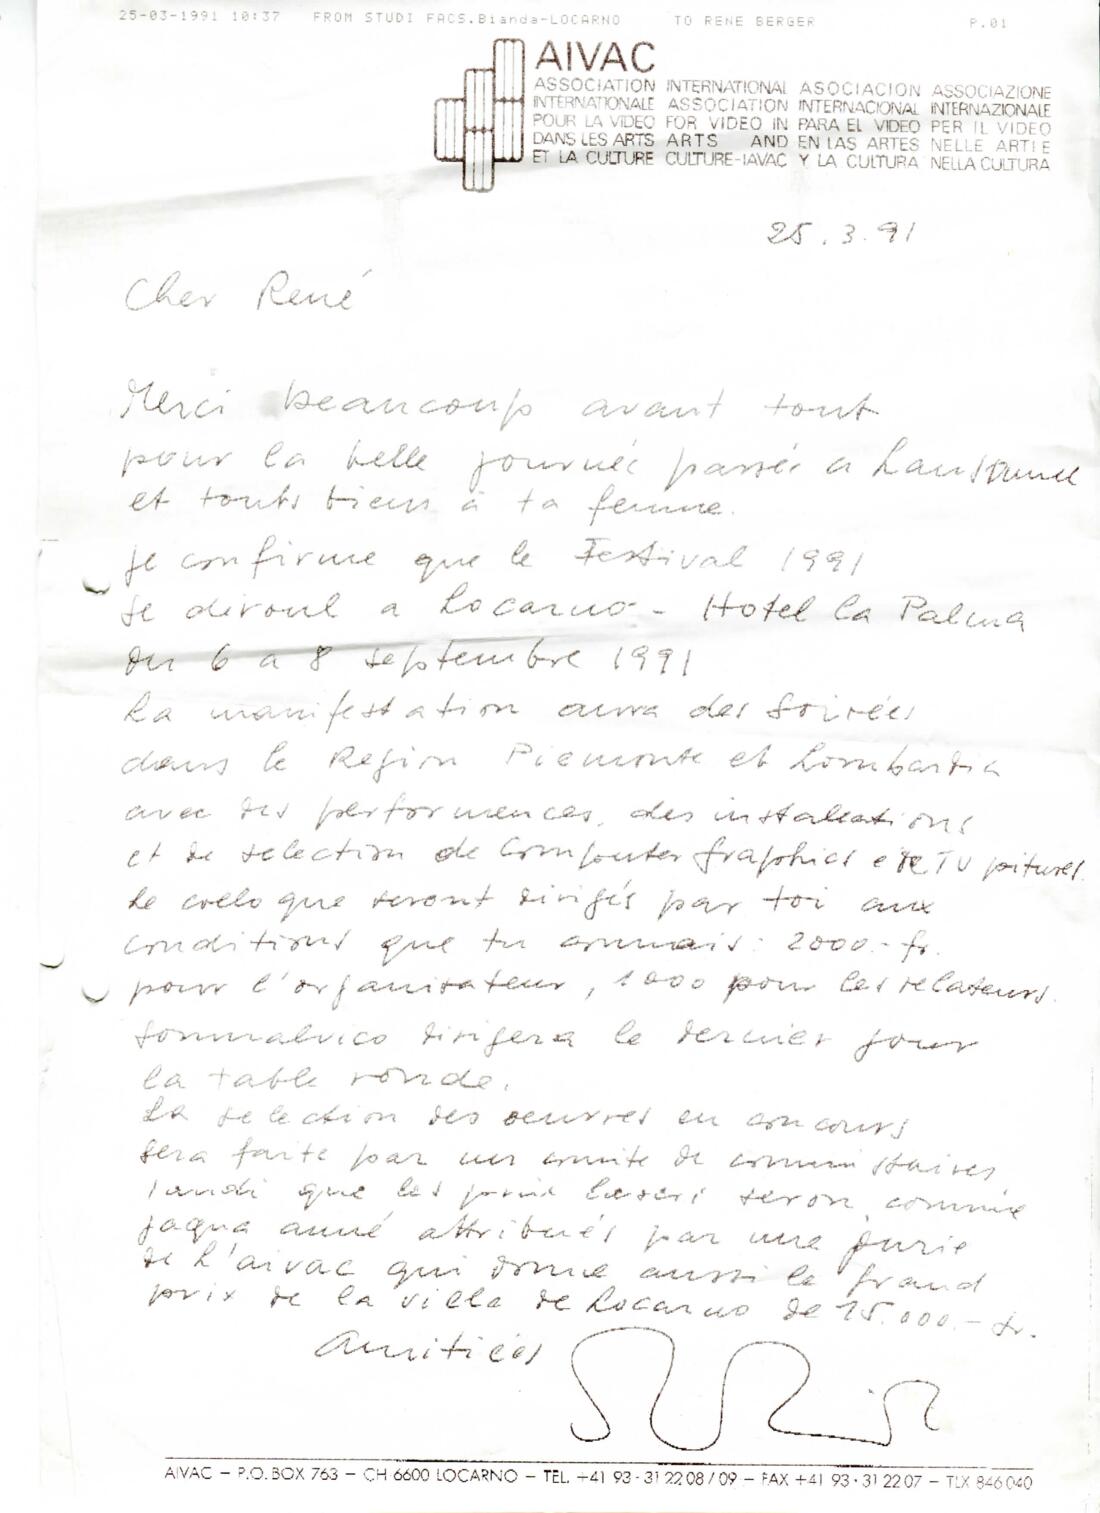 25-03-1991 10:37 FROM STUDI FACS.Bianda-LOCARNO TO RENE BERGER P.01
AIVAC
ASSOCIATION INTERNATIONAL ASOCIACION ASSOCIAZIONE
INTERNATIONALE ASSOCIATION INTERNACIONAL INTERNAZIONALE
POUR LA VIDEO FOR VIDEO IN PARA EL VIDEO PER IL VIDEO
DANS LES ARTS ARTS AND EN LAS ARTES NELLE ARTI E
ET LA CULTURE CULTURE-IAVAC Y LA CULTURA NELLA CULTURA
25.3.91
Cher René
Merci beaucoup avant tout
pour la belle journée passée a
et touts biens à ta femme.
je confirme que le Festival 1991
se déroul a Locarno - Hotel la Palma
du 6 a 8 septembre 1991
La manifestation aura des soirées
dans le Region Piemonte et Lombardia
avec des performences, des installations
et de selection de Computer graphics e de TV pitures.
Le colloque seront dirigés par toi aux
conditions que tu connais: 2000.- fr.
pour l'organisateur, 1000 pour les relateurs.
Sommalvico dirigera le dernier jour
la table ronde.
La selection des oeuvres en concours
sera faite par un comite de commissaires
tandi que les prix laseri seron, comme
jaqua anné attribués par une jurie
de l'aivac qui donne aussi le grand
prix de la ville de Locarno de 15.000.- fr.
Amitiées
AIVAC – P.O. BOX 763 – CH 6600 LOCARNO – TEL. +41 93 - 31 22 08 / 09 – FAX +41 93 - 31 22 07 – TLX 846 040